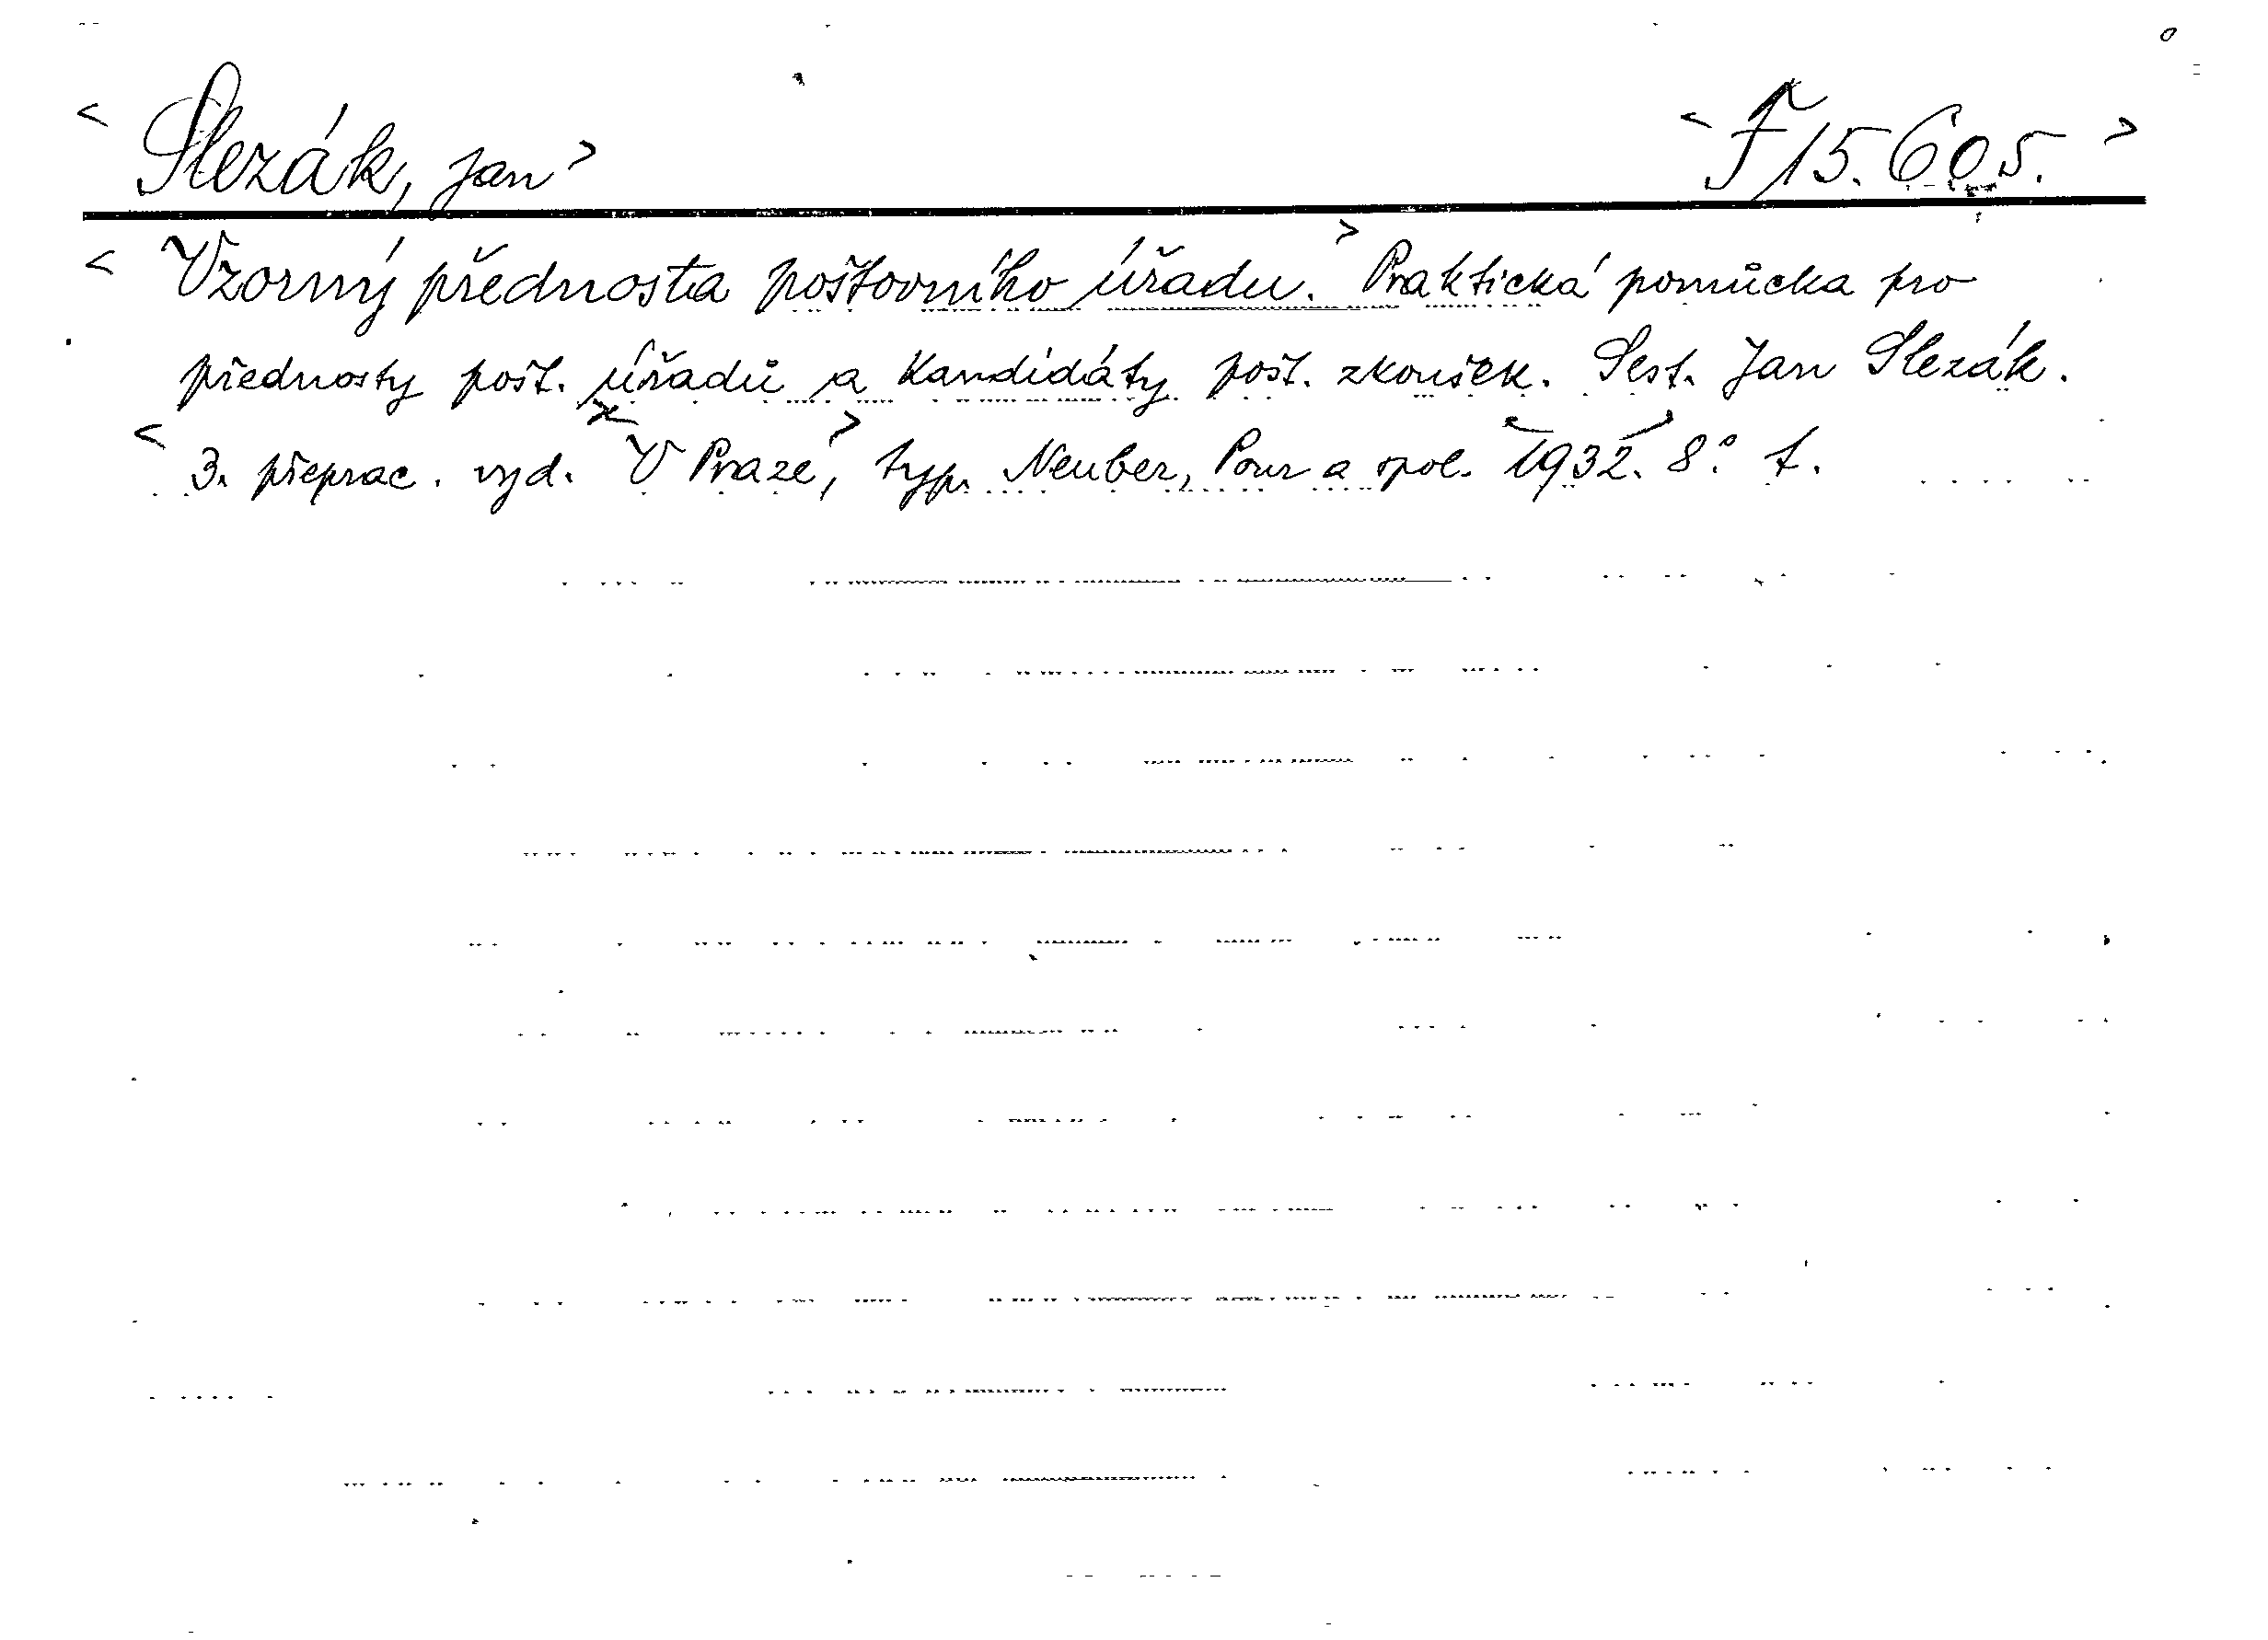 < Slezák, Jan > < F 15.605. >
< Vzorný přednosta poštovního úřadu. > Praktická pomůcka pro
přednosty pošt. úřadů a kandidáty pošt. zkoušek. Sest. Jan Slezák.
< 3. přeprac. vyd. V Praze, > typ. Neuber, Pour a spol. 1932. 8°. f.